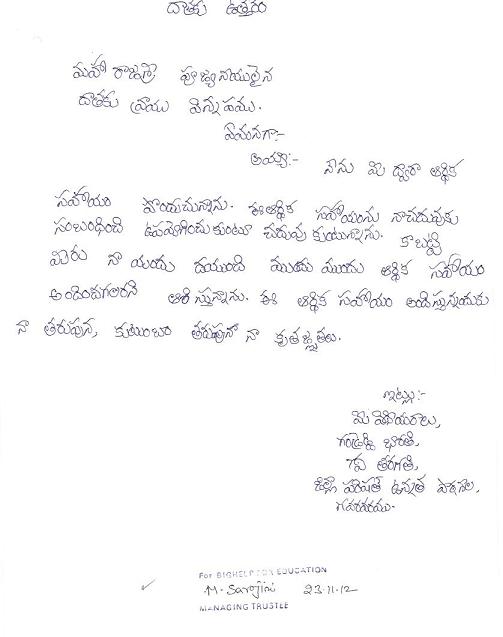 దాతకు ఉత్తరం
మహా రాజశ్రీ పూజ్యనీయులైన
దాతకు వ్రాయు విన్నపము.
ఏమనగా:-
అయ్యా:-
నేను మీ ద్వారా ఆర్థిక
సహాయం పొందుచున్నాను. ఈ ఆర్థిక సహాయంను నాచదువుకు
సంబంధించి ఉపయోగించుకుంటూ చదువు కుంటున్నాను. కాబట్టి
మీరు నా యందు దయుంచి ముందు ముందు ఆర్థిక సహాయం
అందించగలరని ఆశిస్తున్నాను. ఈ ఆర్థిక సహాయం అందిస్తున్నందుకు
నా తరుపున, కుటుంబం తరుపునా నా కృతజ్ఞతలు.
ఇట్లు:-
మీ విధేయురాలు,
భారతి,
7వ తరగతి,
జిల్లా పరిషత్ ఉన్నత పాఠశాల,
For BIGHELP FOR EDUCATION
M. Sarojini 23.11.12
MANAGING TRUSTEE